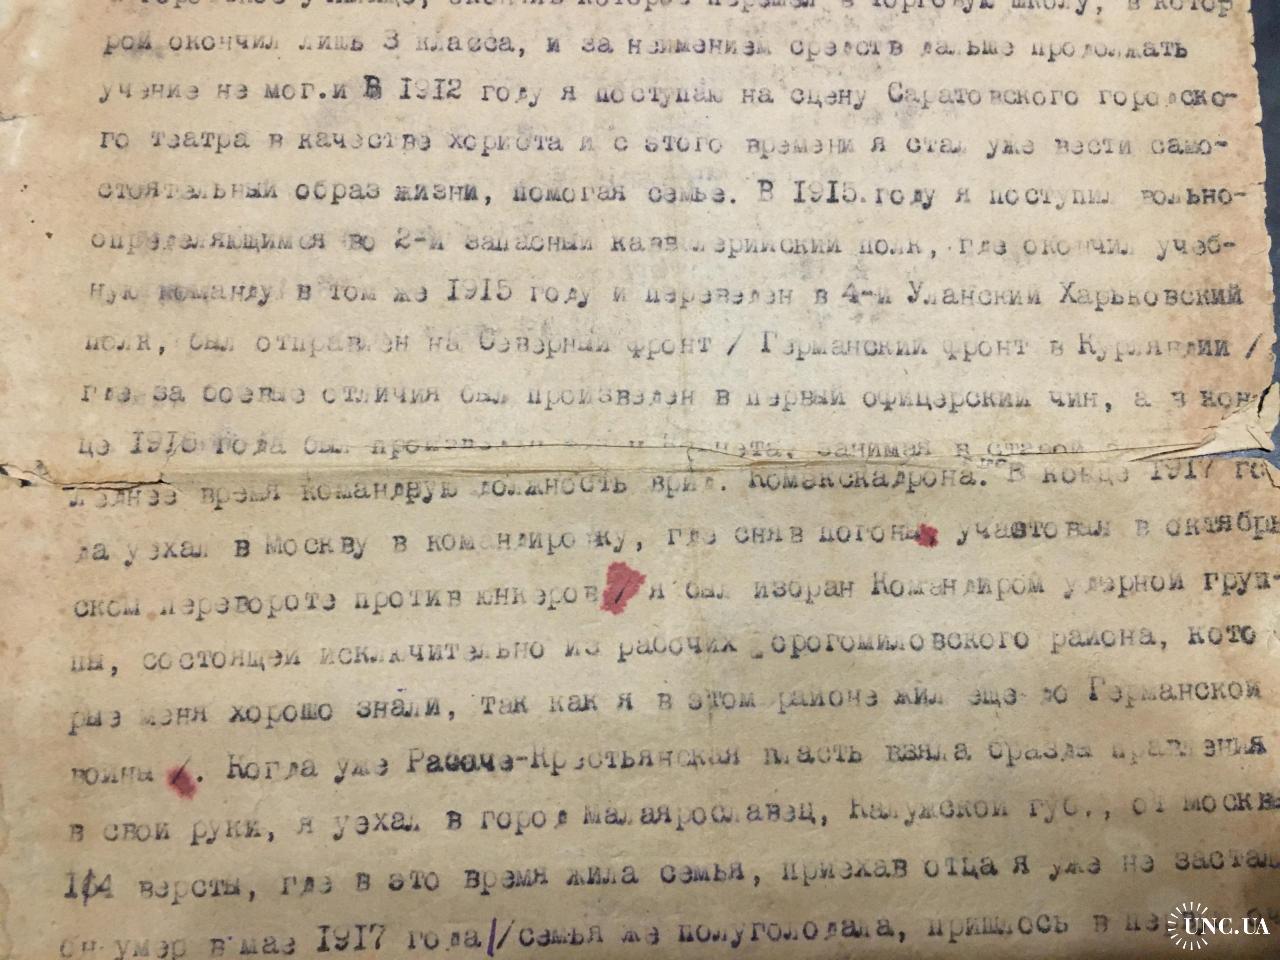 в городское училище, окончив которое перешел в торговую школу, в котор
рой окончил лишь 3 класса, и за неимением средств дальше продолжать
учение не мог.и В 1912 году я поступаю на сцену Саратовского городско-
го театра в качестве хориста и с этого времени я стал уже вести само-
стоятельный образ жизни, помогая семье. В 1915.году я поступил вольно-
определяющимся во 2-й запасный кавалерийский полк, где окончил учеб-
ную команду в том же 1915 году и переведен в 4-й Уланский Харьковский
полк, был отправлен на Северный фронт / Германский фронт в Курляндии /,
где за боевые отличия был произведен в первый офицерский чин, а в кон-
це 1916 года был произведен занимая в старой
леднее время командную должность врид. Комэскадрона. В конце 1917 го
да уехал в Москву в командировку, где сняв погоны, участовал в октябрь
ском перевороте против юнкеров / я был избран Командиром ударной груп-
пы, состоящей исключительно из рабочих Дорогомиловского района, кото
рые меня хорошо знали, так как я в этом районе жил еще до Германской
войны /. Когда уже Рабоче-Крестьянская власть взяла бразды правления
в свои руки, я уехал в город Малаярославец, Калужской губ., от Москвы
114 версты, где в это время жила семья, приехав отца я уже не застал
он умер в мае 1917 года//семья же полуголодала, пришлось в
UNC.UA